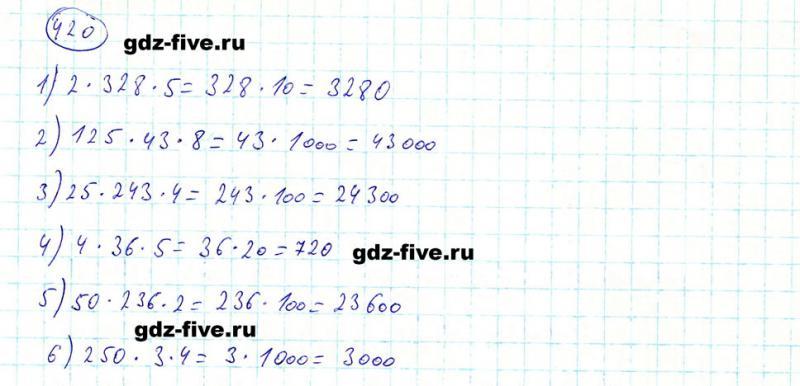 420
gdz-five.ru
1) 2 · 328 · 5 = 328 · 10 = 3280
2) 125 · 43 · 8 = 43 · 1000 = 43000
3) 25 · 243 · 4 = 243 · 100 = 24300
4) 4 · 36 · 5 = 36 · 20 = 720
gdz-five.ru
5) 50 · 236 · 2 = 236 · 100 = 23600
gdz-five.ru
6) 250 · 3 · 4 = 3 · 1000 = 3000